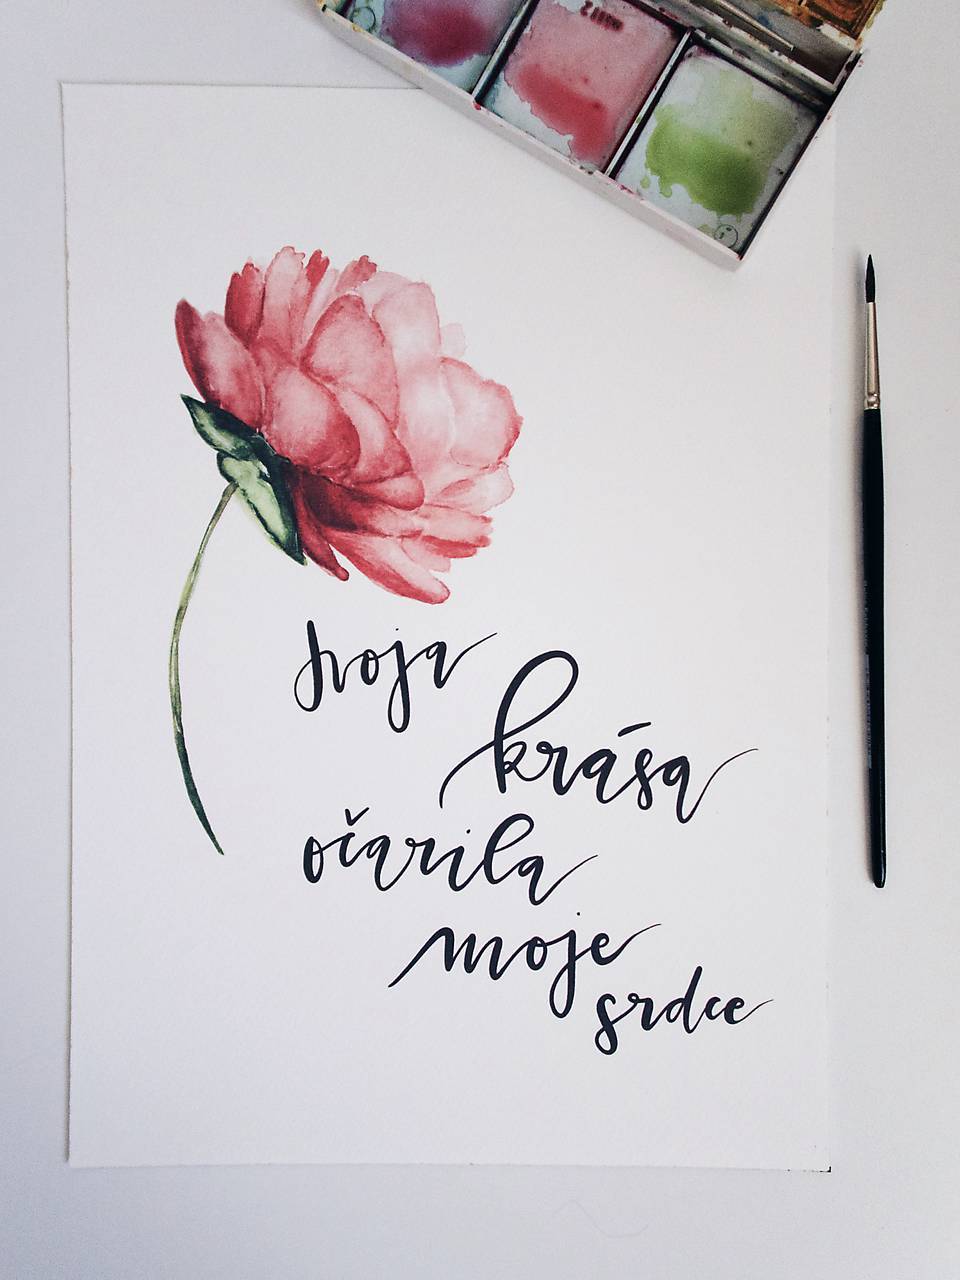 tvoja
krása
očarila
moje
srdce